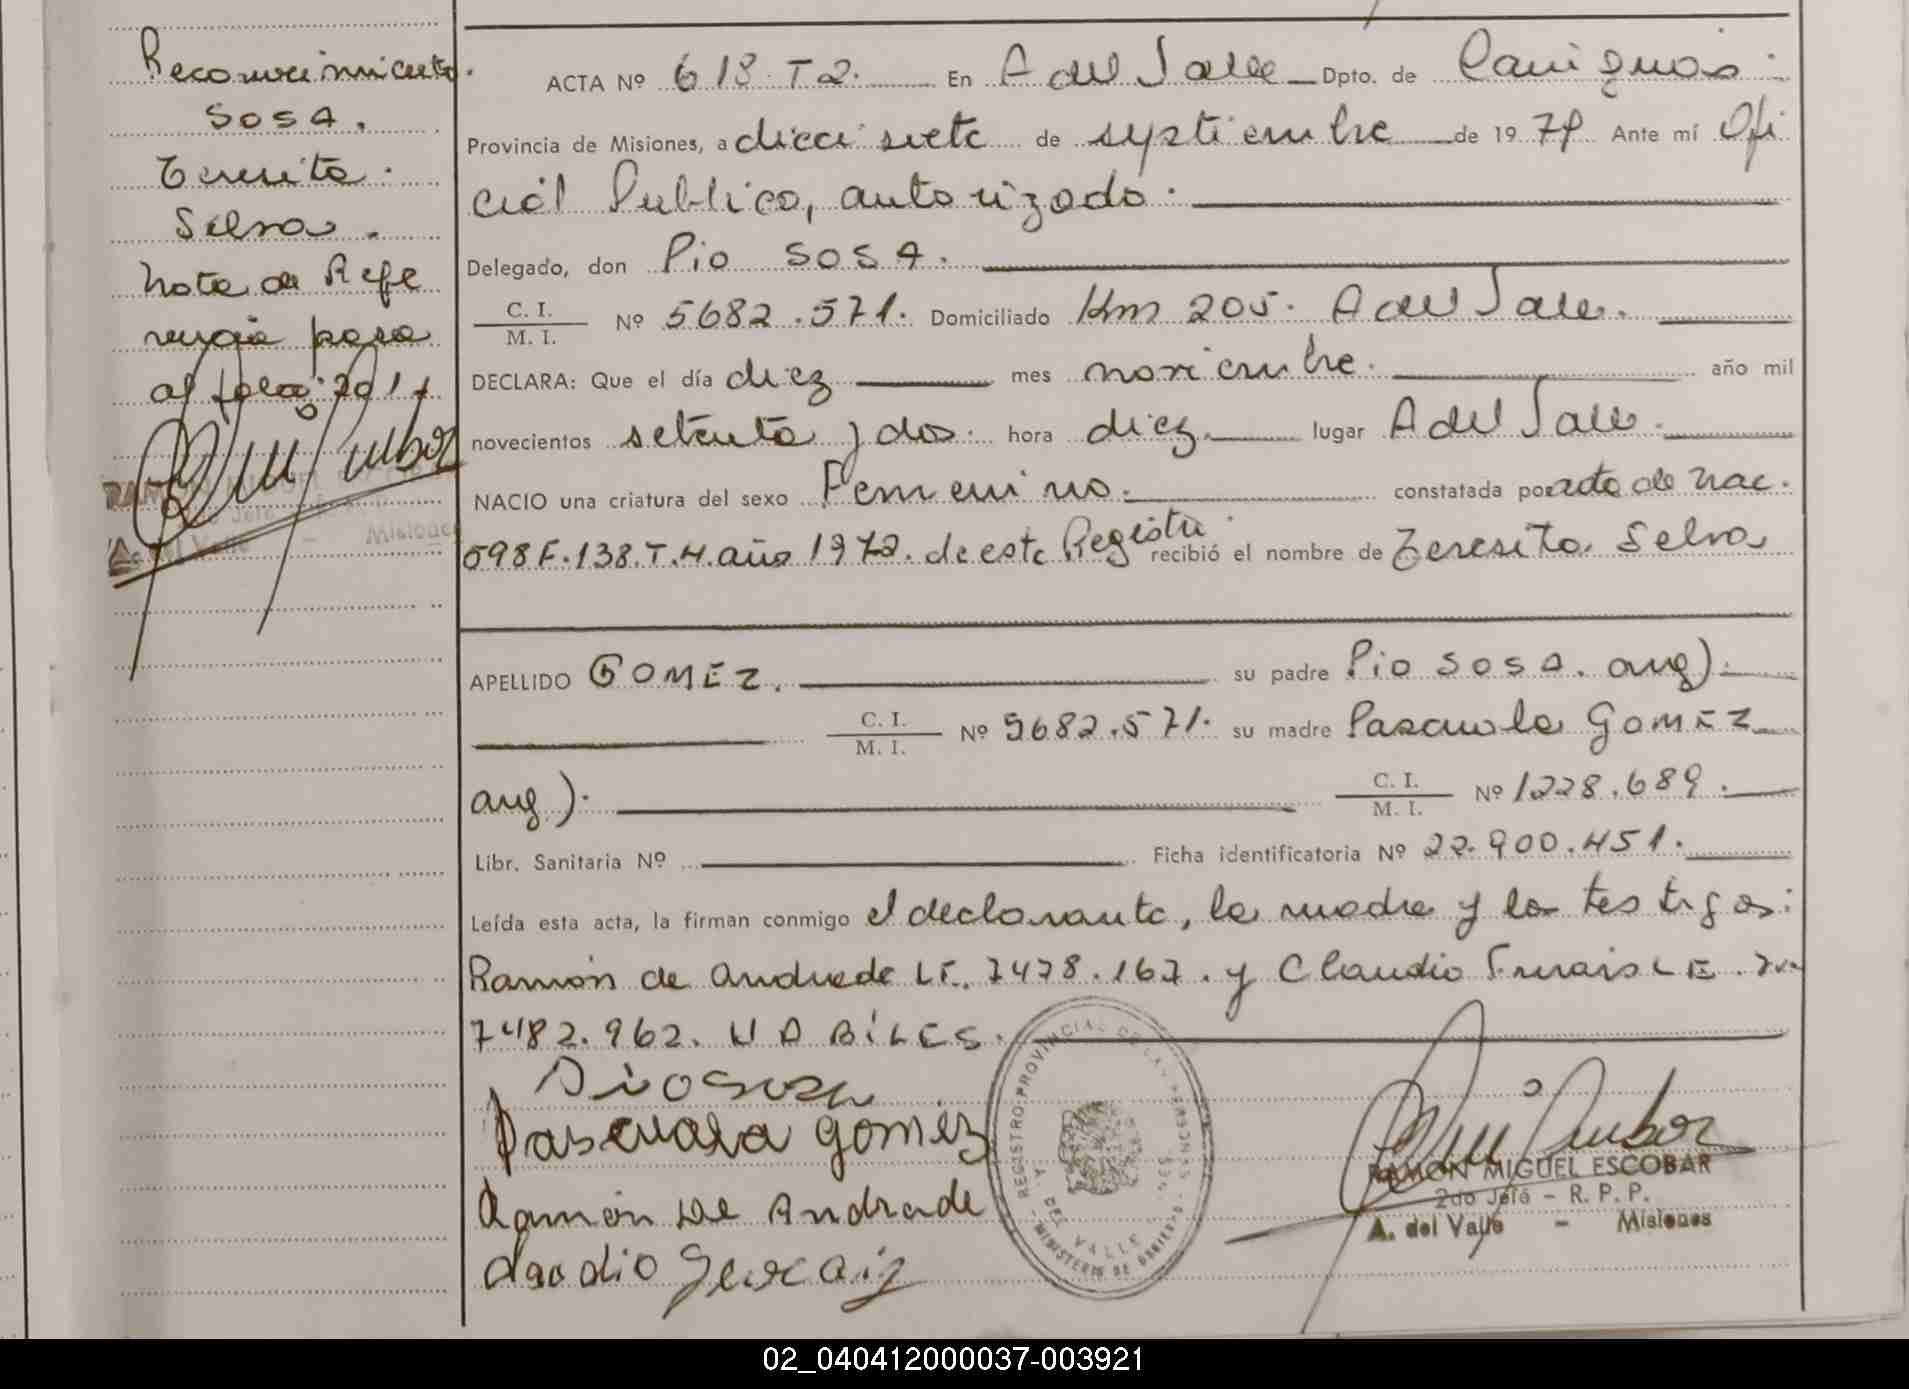 Reconocimiento.
SOSA.
Teresita
Selva.
Nota de Refe
rencia pasa
al folio: 201
RAMON MIGUEL
2do Jefe
A. del Valle - Misiones
ACTA Nº 618. T2. En A del Valle Dpto. de Cainguás.
Provincia de Misiones, a dieci siete de septiembre de 1979 Ante mí Ofi
cial Publico, autorizado.
Delegado, don Pio SOSA.
C. I.
M. I. Nº 5682.571. Domiciliado Km 205. A del Valle.
DECLARA: Que el día diez mes noviembre. año mil
novecientos setenta y dos. hora diez lugar A del Valle.
NACIO una criatura del sexo Femenino. constatada por acta de nac.
598 F.138.T.4. año 1972. de este Registro recibió el nombre de Teresita Selva
APELLIDO GOMEZ. su padre Pio SOSA. arg).
C. I.
M. I. Nº 5682.571. su madre Pascuala GOMEZ
arg). C. I.
M. I. Nº 1228.689.
Libr. Sanitaria Nº Ficha identificatoria Nº 22.900.451.
Leída esta acta, la firman conmigo el declarante, la madre y los testigos:
Ramón de Andrade LE. 7478.167. y Claudio LE.
7482.962. HABILES.
Pio Sosa
Pascuala gomez
Ramón De Andrade
Claudio
REGISTRO PROVINCIAL DE LAS PERSONAS
A. DEL VALLE
MINISTERIO DE GOBIERNO
RAMON MIGUEL ESCOBAR
2do Jefe - R. P. P.
A. del Valle - Misiones
02_040412000037-003921